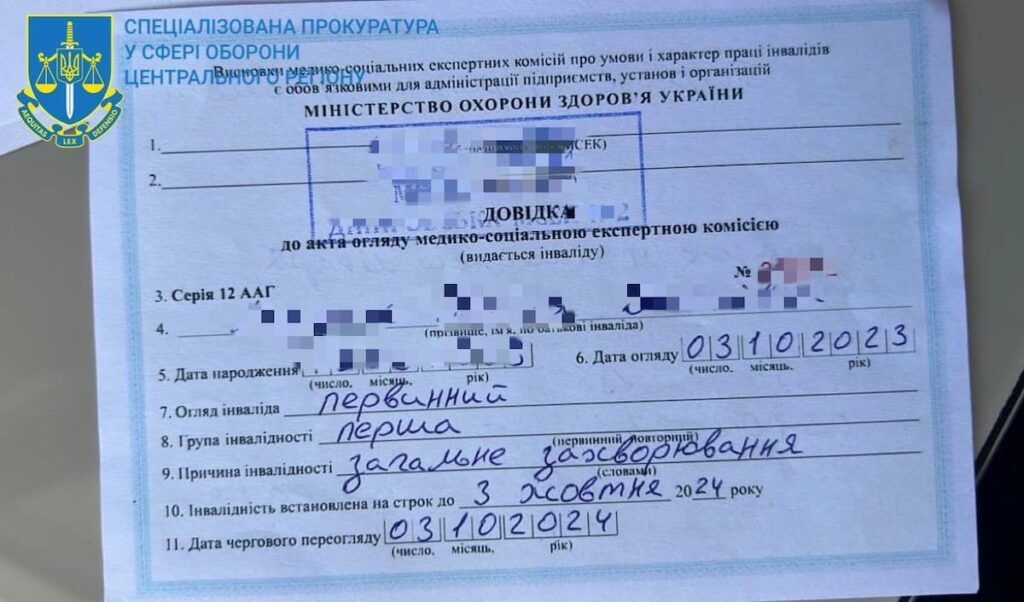 СПЕЦІАЛІЗОВАНА ПРОКУРАТУРА
У СФЕРІ ОБОРОНИ
ЦЕНТРАЛЬНОГО РЕГІОНУ
AEQUITAS LEX DEFENSIO
Висновки медико-соціальних експертних комісій про умови і характер праці інвалідів
є обов'язковими для адміністрації підприємств, установ і організацій
МІНІСТЕРСТВО ОХОРОНИ ЗДОРОВ'Я УКРАЇНИ
1.
2.
ДОВІДКА
до акта огляду медико-соціальною експертною комісією
(видається інваліду)
№
3. Серія 12 ААГ
4.
(прізвище, ім'я, по батькові інваліда)
5. Дата народження
(число, місяць, рік)
6. Дата огляду 03102023
(число, місяць, рік)
7. Огляд інваліда первинний
(первинний повторний)
8. Група інвалідності перша
(словами)
9. Причина інвалідності загальне захворювання
10. Інвалідність встановлена на строк до 3 жовтня 2024 року
11. Дата чергового переогляду 03102024
(число, місяць, рік)